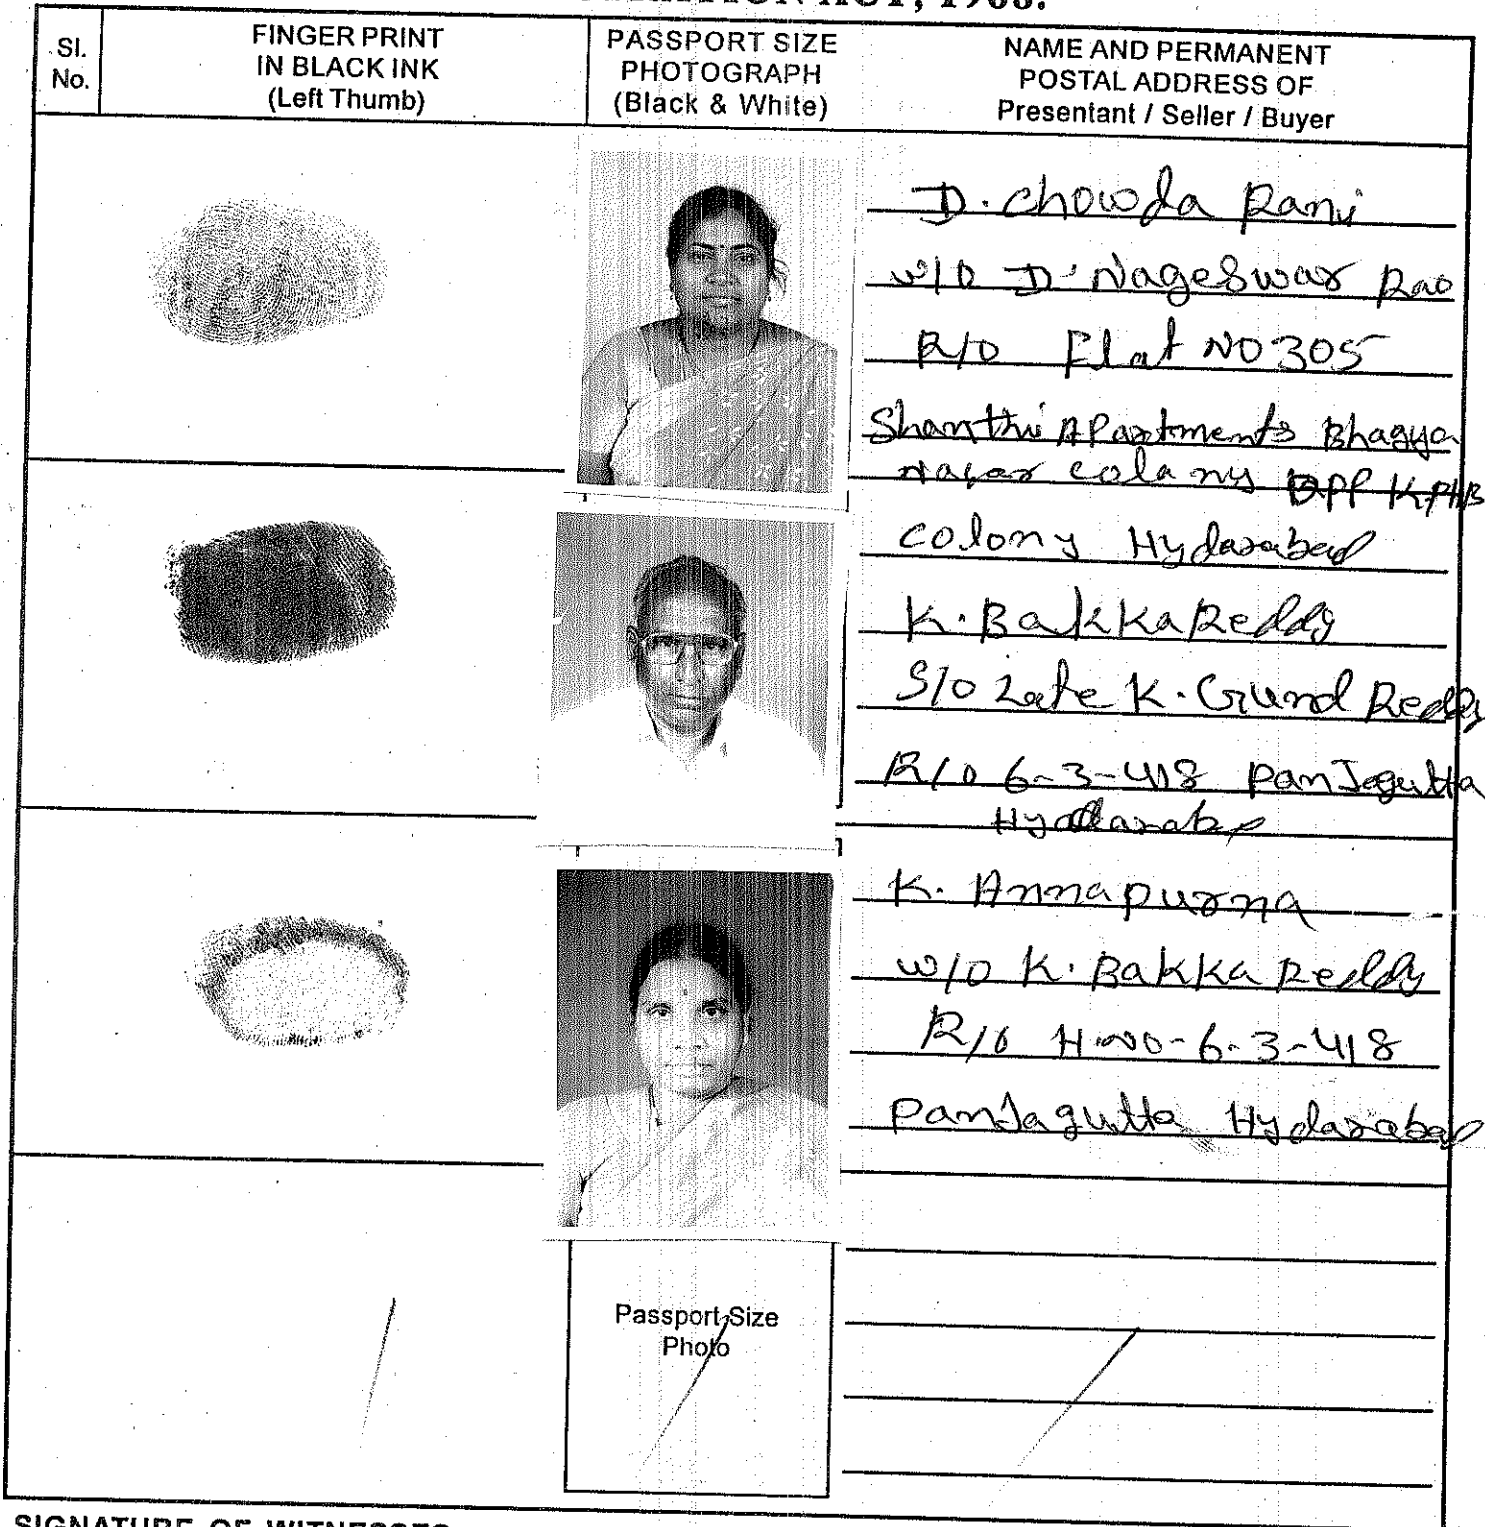 ACT, 1908.
Sl. No.
FINGER PRINT
IN BLACK INK
(Left Thumb)
PASSPORT SIZE
PHOTOGRAPH
(Black & White)
NAME AND PERMANENT
POSTAL ADDRESS OF
Presentant / Seller / Buyer
D. Chowda Rani
w/o D. Nageswar Rao
R/o Flat NO 305
Shanthi Apartments Bhagya
nagar colany opp K.PHB
colony Hydarabad
K. Bakka Reddy
S/o Late K. Gund Reddy
R/o 6-3-418 PanJagutta
Hydarabad
K. Annapurna
w/o K. Bakka Reddy
R/o H.no-6-3-418
PanJagutta Hydarabad
Passport Size
Photo
SIGNATURE OF WITNESSES